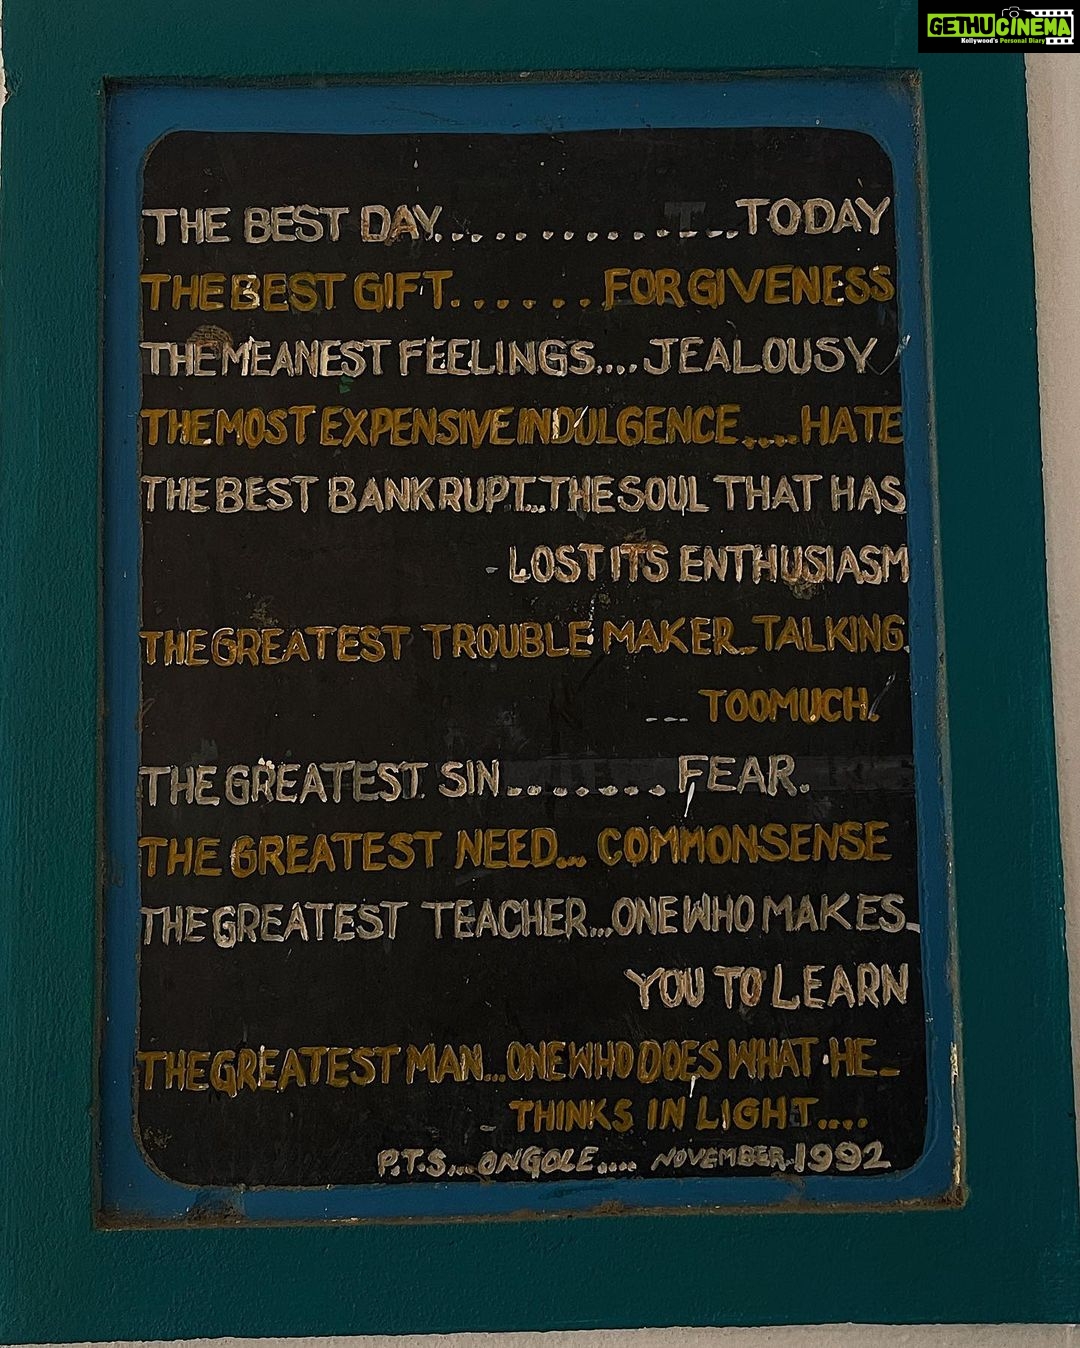 GETHU CINEMA
Kollywood's Personal Diary
THE BEST DAY..............TODAY
THE BEST GIFT......FORGIVENESS
THE MEANEST FEELINGS....JEALOUSY
THE MOST EXPENSIVE INDULGENCE....HATE
THE BEST BANKRUPT...THE SOUL THAT HAS
- LOST ITS ENTHUSIASM
THE GREATEST TROUBLE MAKER..TALKING.
--- TOOMUCH.
THE GREATEST SIN.......FEAR.
THE GREATEST NEED... COMMONSENSE
THE GREATEST TEACHER...ONE WHO MAKES-
YOU TO LEARN
THE GREATEST MAN...ONE WHO DOES WHAT HE-
- THINKS IN LIGHT....
P.T.S...ONGOLE.... NOVEMBER..1992